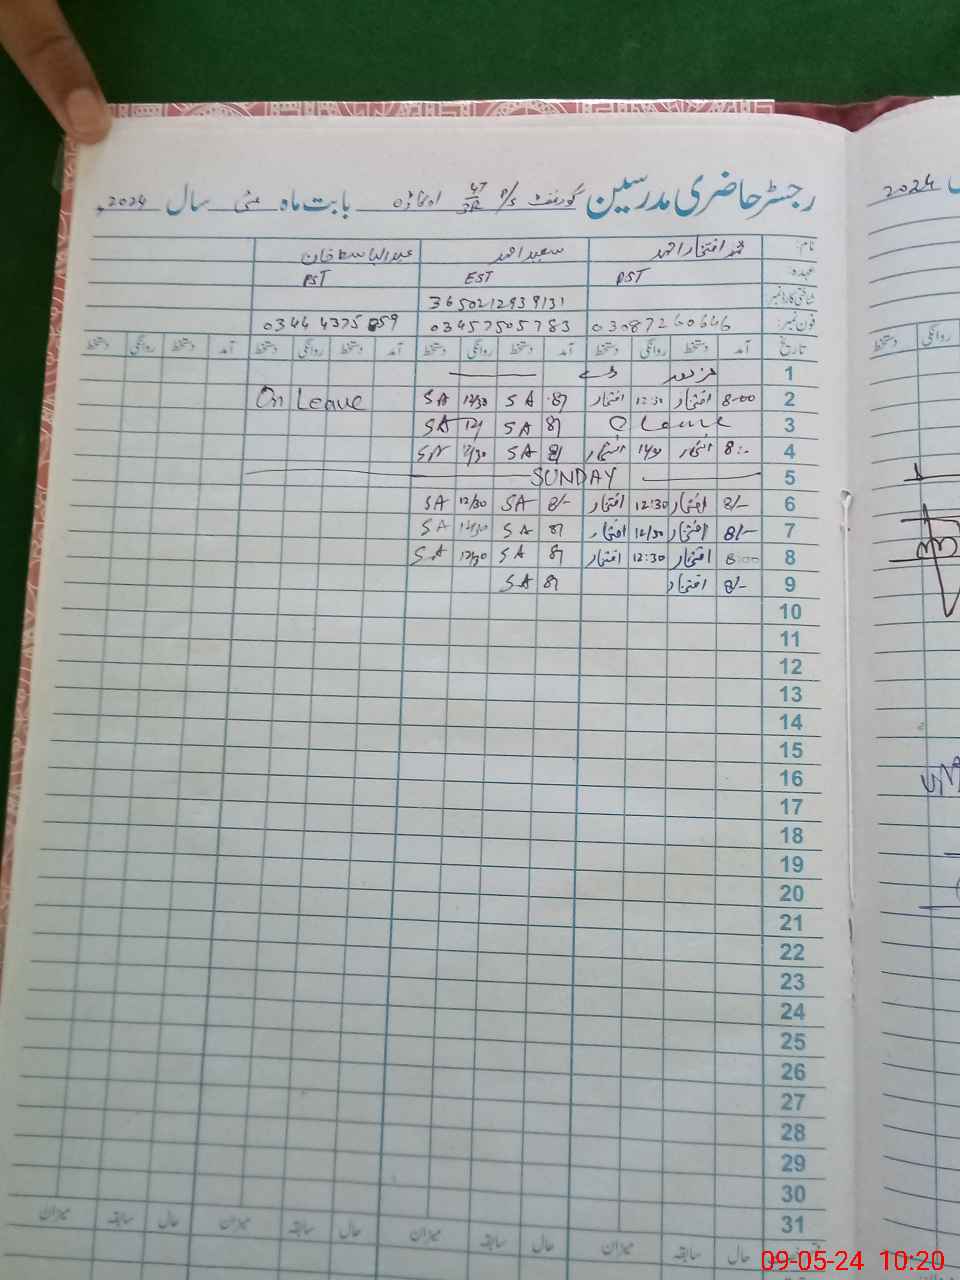 رجسٹر حاضری مدرسین گورنمنٹ P/S 47/3R اوکاڑہ بابت ماہ مئی سال 2024ء
2024
نام: محمد افتخار احمد سعید احمد عبدالباسط خان
عہدہ: PST EST PST
شناختی کارڈ نمبر: 3650212939131
فون نمبر: 03087260646 03457505783 0344 4375 859
تاریخ آمد دستخط روانگی دستخط آمد دستخط روانگی دستخط آمد دستخط روانگی دستخط آمد دستخط روانگی دستخط روانگی دستخط
1 مزدور ڈے
2 8:00 افتخار 12:30 افتخار 8/ SA 12/30 SA On Leave
3 C Leave 8/ SA 12/ SA
4 8:- افتخار افتخار 8/ SA 12/30 SA
5 SUNDAY
6 8/- افتخار 12:30 افتخار 8/- SA 12/30 SA
7 8/- افتخار 12/30 افتخار 8/ SA 12/30 SA
8 8:00 افتخار 12:30 افتخار 8/ SA 12/30 SA
9 8/- افتخار 8/ SA
10
11
12
13
14
15
16
17
18
19
20
21
22
23
24
25
26
27
28
29
30
31
حال سابقہ میزان حال سابقہ میزان حال سابقہ میزان حال سابقہ میزان
09-05-24 10:20